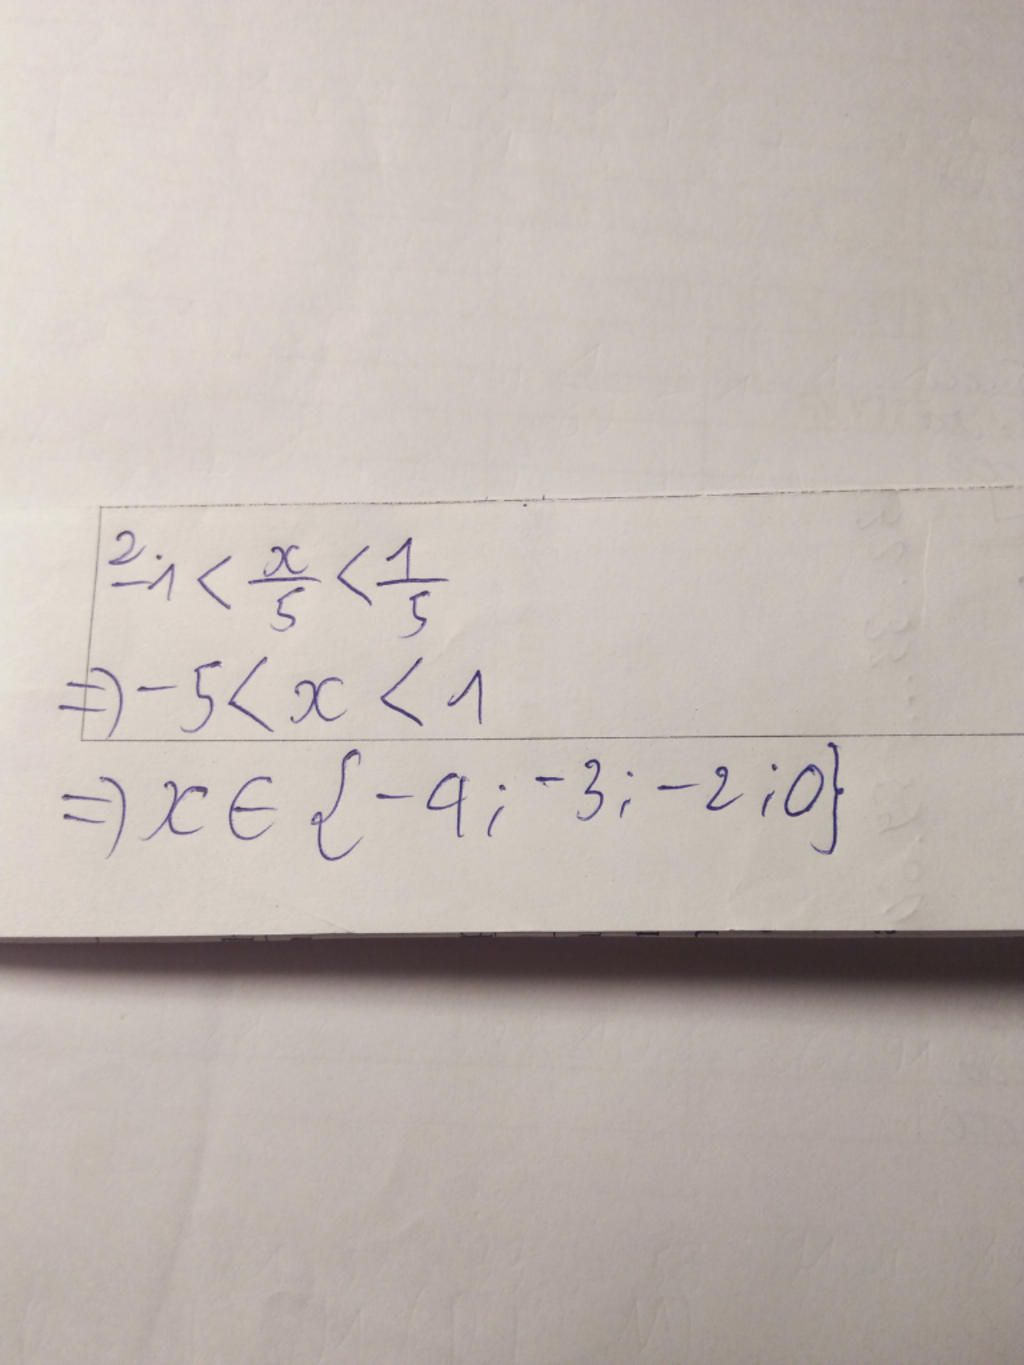 2. -1 < x/5 < 1/5
=> -5 < x < 1
=> x ∈ {-4; -3; -2; 0}